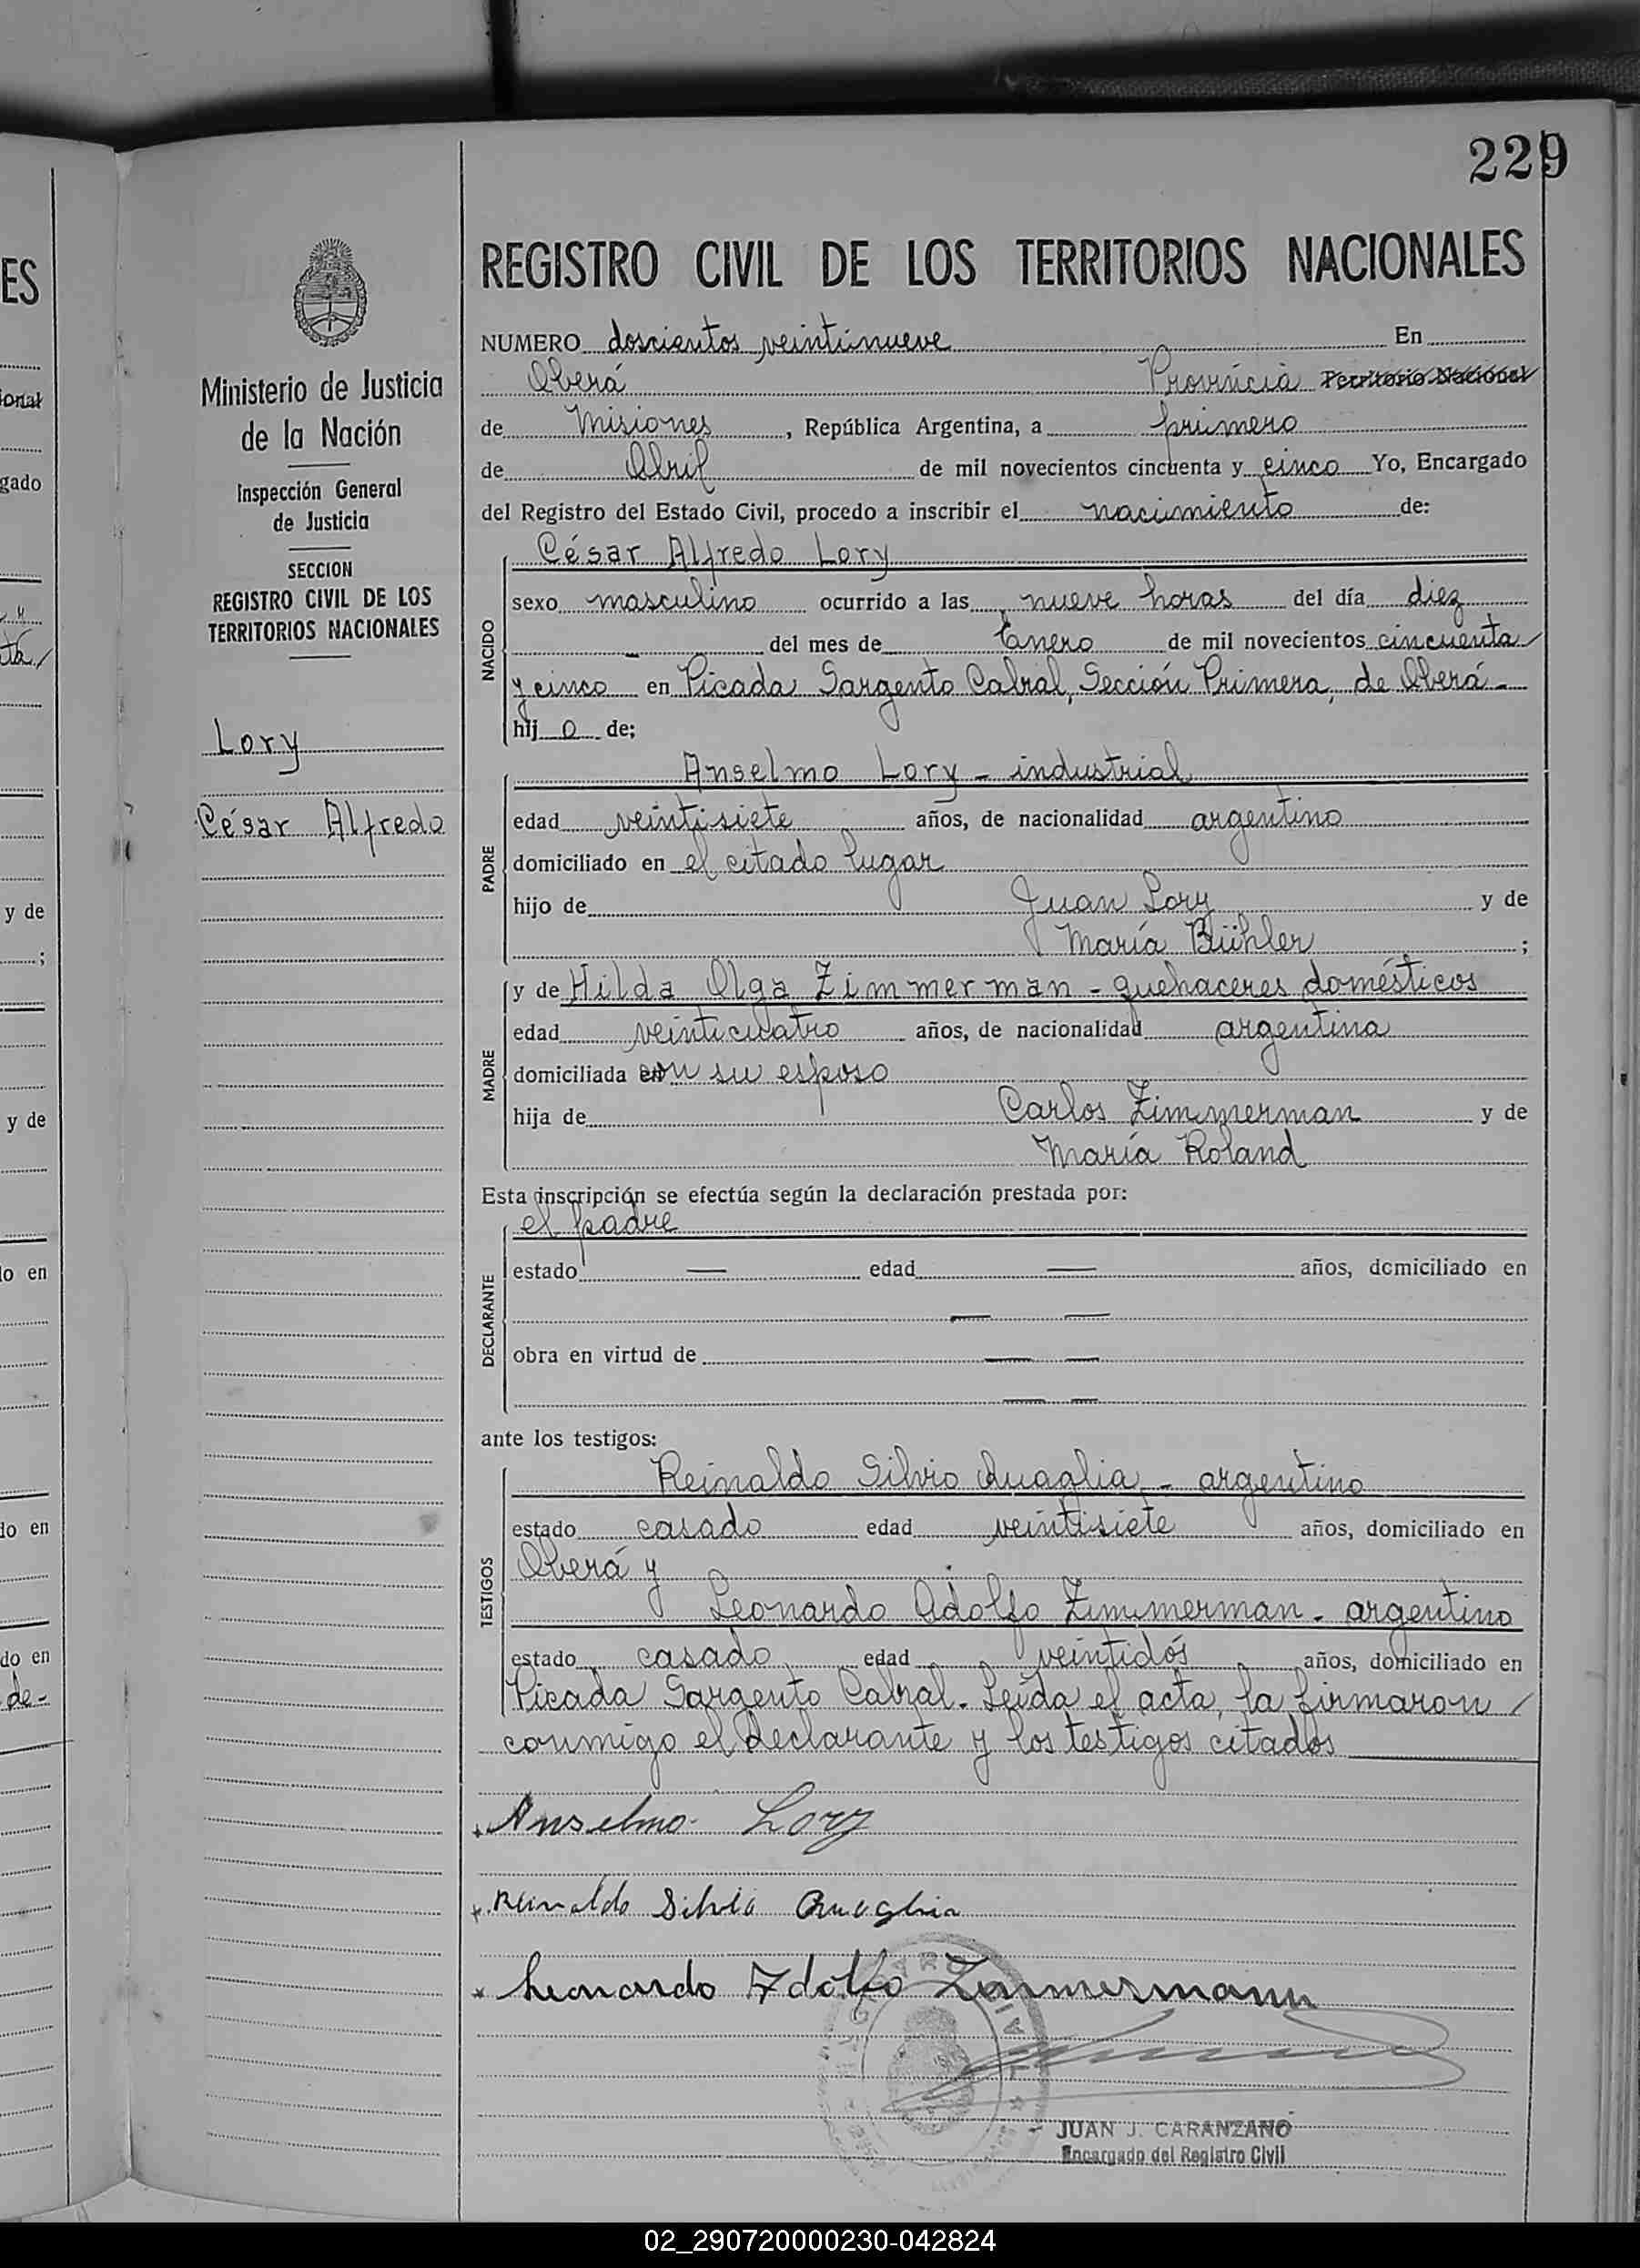 229
REGISTRO CIVIL DE LOS TERRITORIOS NACIONALES
Ministerio de Justicia
de la Nación
Inspección General
de Justicia
SECCION
REGISTRO CIVIL DE LOS
TERRITORIOS NACIONALES
Lory
César Alfredo
NUMERO doscientos veintinueve En
Oberá Provincia Territorio Nacional
de Misiones, República Argentina, a primero
de Abril de mil novecientos cincuenta y cinco Yo, Encargado
del Registro del Estado Civil, procedo a inscribir el nacimiento de:
NACIDO
César Alfredo Lory
sexo masculino ocurrido a las nueve horas del día diez
— del mes de Enero de mil novecientos cincuenta/
y cinco en Picada Sargento Cabral, Sección Primera, de Oberá-
hij o de;
PADRE
Anselmo Lory - industrial
edad veintisiete años, de nacionalidad argentino
domiciliado en el citado lugar
hijo de Juan Lory y de
María Bühler ;
MADRE
y de Hilda Olga Zimmerman - quehaceres domésticos
edad veinticuatro años, de nacionalidad argentina
domiciliada con su esposo
hija de Carlos Zimmerman y de
María Roland
Esta inscripción se efectúa según la declaración prestada por:
DECLARANTE
el padre
estado — edad — años, domiciliado en
— —
obra en virtud de — —
— —
ante los testigos:
TESTIGOS
Reinaldo Silvio Quaglia - argentino
estado casado edad veintisiete años, domiciliado en
Oberá y
Leonardo Adolfo Zimmerman - argentino
estado casado edad veintidós años, domiciliado en
Picada Sargento Cabral. Leída el acta, la firmaron /
conmigo el Declarante y los testigos citados
Anselmo Lory
Reinaldo Silvio Quaglia
Leonardo Adolfo Zimmermann
JUAN J. CARANZANO
Encargado del Registro Civil
ES
ional
gado
y de
;
y de
do en
do en
do en
de-
02_290720000230-042824